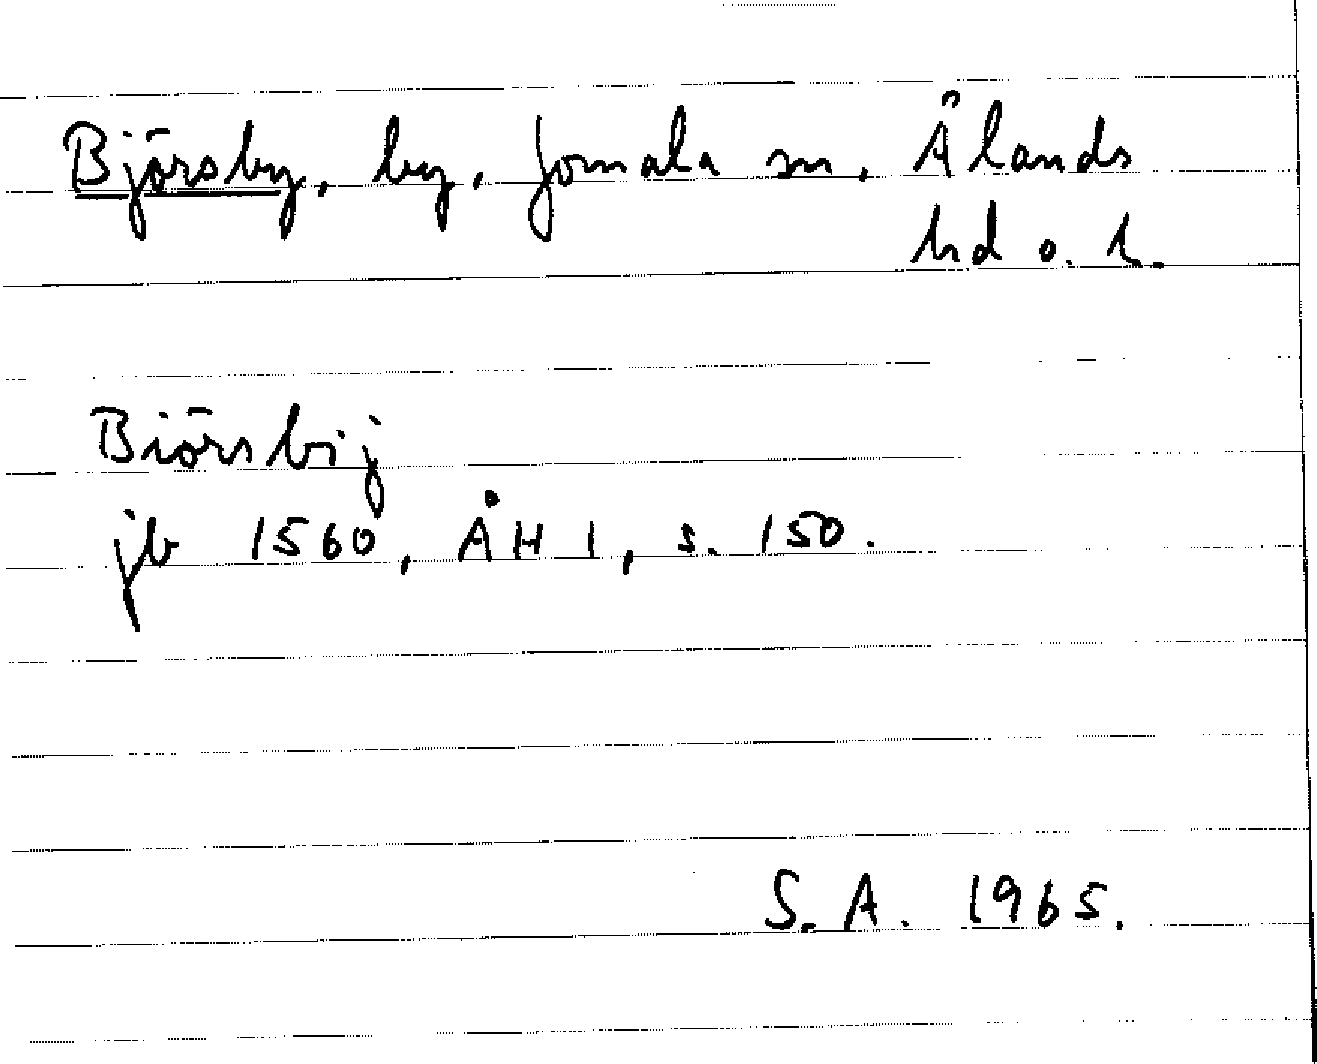 Björsby, by, Jomala sn, Ålands
hd o. l.
Biörsbij
jb 1560, ÅH 1, s. 150.
S. A. 1965.